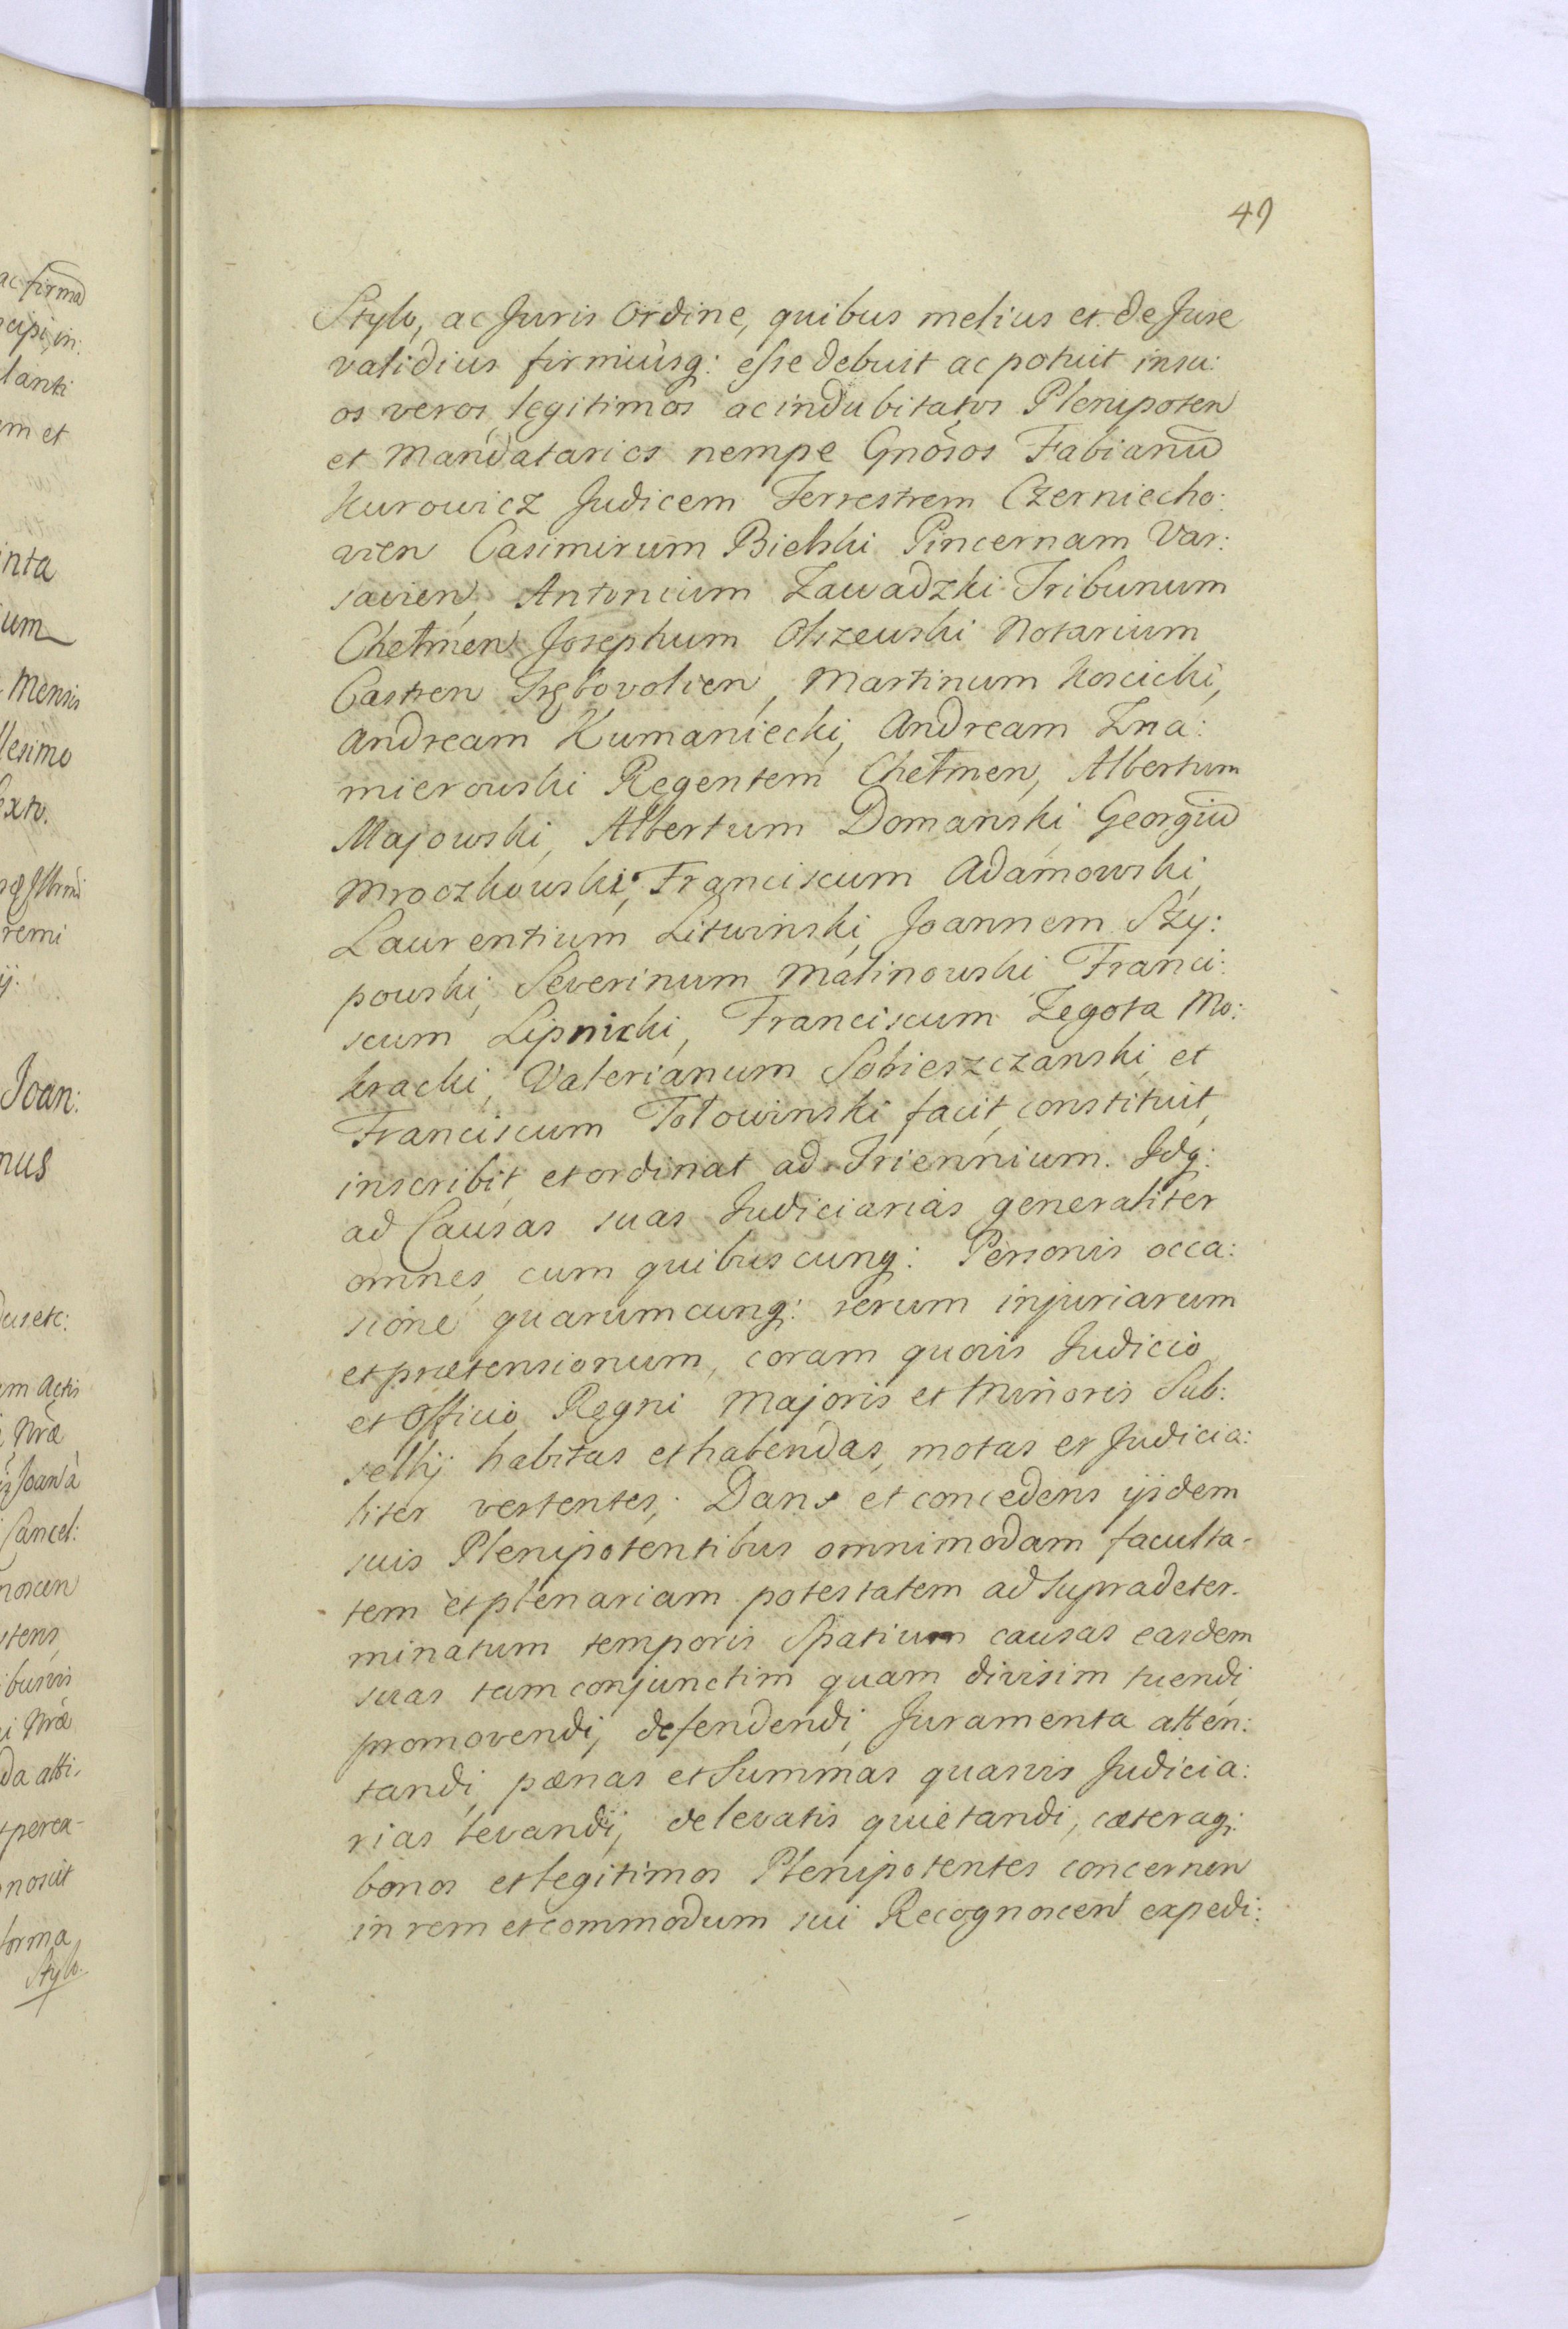 49
Stylo, ac Juris Ordine, quibus melius et de Jure
validius firmiusq: esse debuit ac potuit in su:
os veros, legitimos ac indubitatos Plenipoten
et Mandatarios nempe Gnōsos Fabianū
Kurowicz Judicem Terrestrem Czerniecho:
vien Casimirum Bielski Pincernam Var:
savien, Antonium Zawadzki Tribunum
Chełmen Josephum Olszewski Notarium
Castren Trębovolien, Martinum Koscicki,
Andream Kumaniecki, Andream Zna:
mierowski Regentem Chełmen, Albertum
Majowski, Albertum Domanski Georgiū
Mroczkowski, Franciscum Adamowski,
Laurentium Litwinski, Joannem Szy:
powski, Severinum Malinowski Franci:
scum Lipnicki, Franciscum Zegota Mo:
kracki, Valerianum Sobieszczanski, et
Franciscum Tołowinski facit, constituit,
inscribit, et ordinat ad Triennium. Idq:
ad Causas suas Judiciarias generaliter
omnes, cum quibuscunq: Personis occa:
sione quarumcunq: rerum injuriarum
et prætensionum, coram quovis Judicio
et Officio Regni Majoris et Minoris Sub:
sellij habitas et habendas, motas et Judicia:
liter vertentes; Dans et concedens ijsdem
suis Plenipotentibus omnimodam faculta-
tem et plenariam potestatem ad supradeter-
minatum temporis Spatium causas easdem
suas tam conjunctim quam divisim tuendi,
promovendi, defendendi, Juramenta atten:
tandi, pænas et Summas quasvis Judicia:
rias levandi, de levatis quietandi, cæteraq:
bonos et legitimos Plenipotentes concernen
in rem et commodum sui Recognoscen expedi:
ac firmā
lanti
m et
inta
um
Mensis
llesimo
exto.
remi
Joan:
nus
etc:
m Actis
Nræ
Joan à
Cancel:
noscen
stens
busvis
Nræ
da atti,
perea-
noscit
forma,
Stylo.